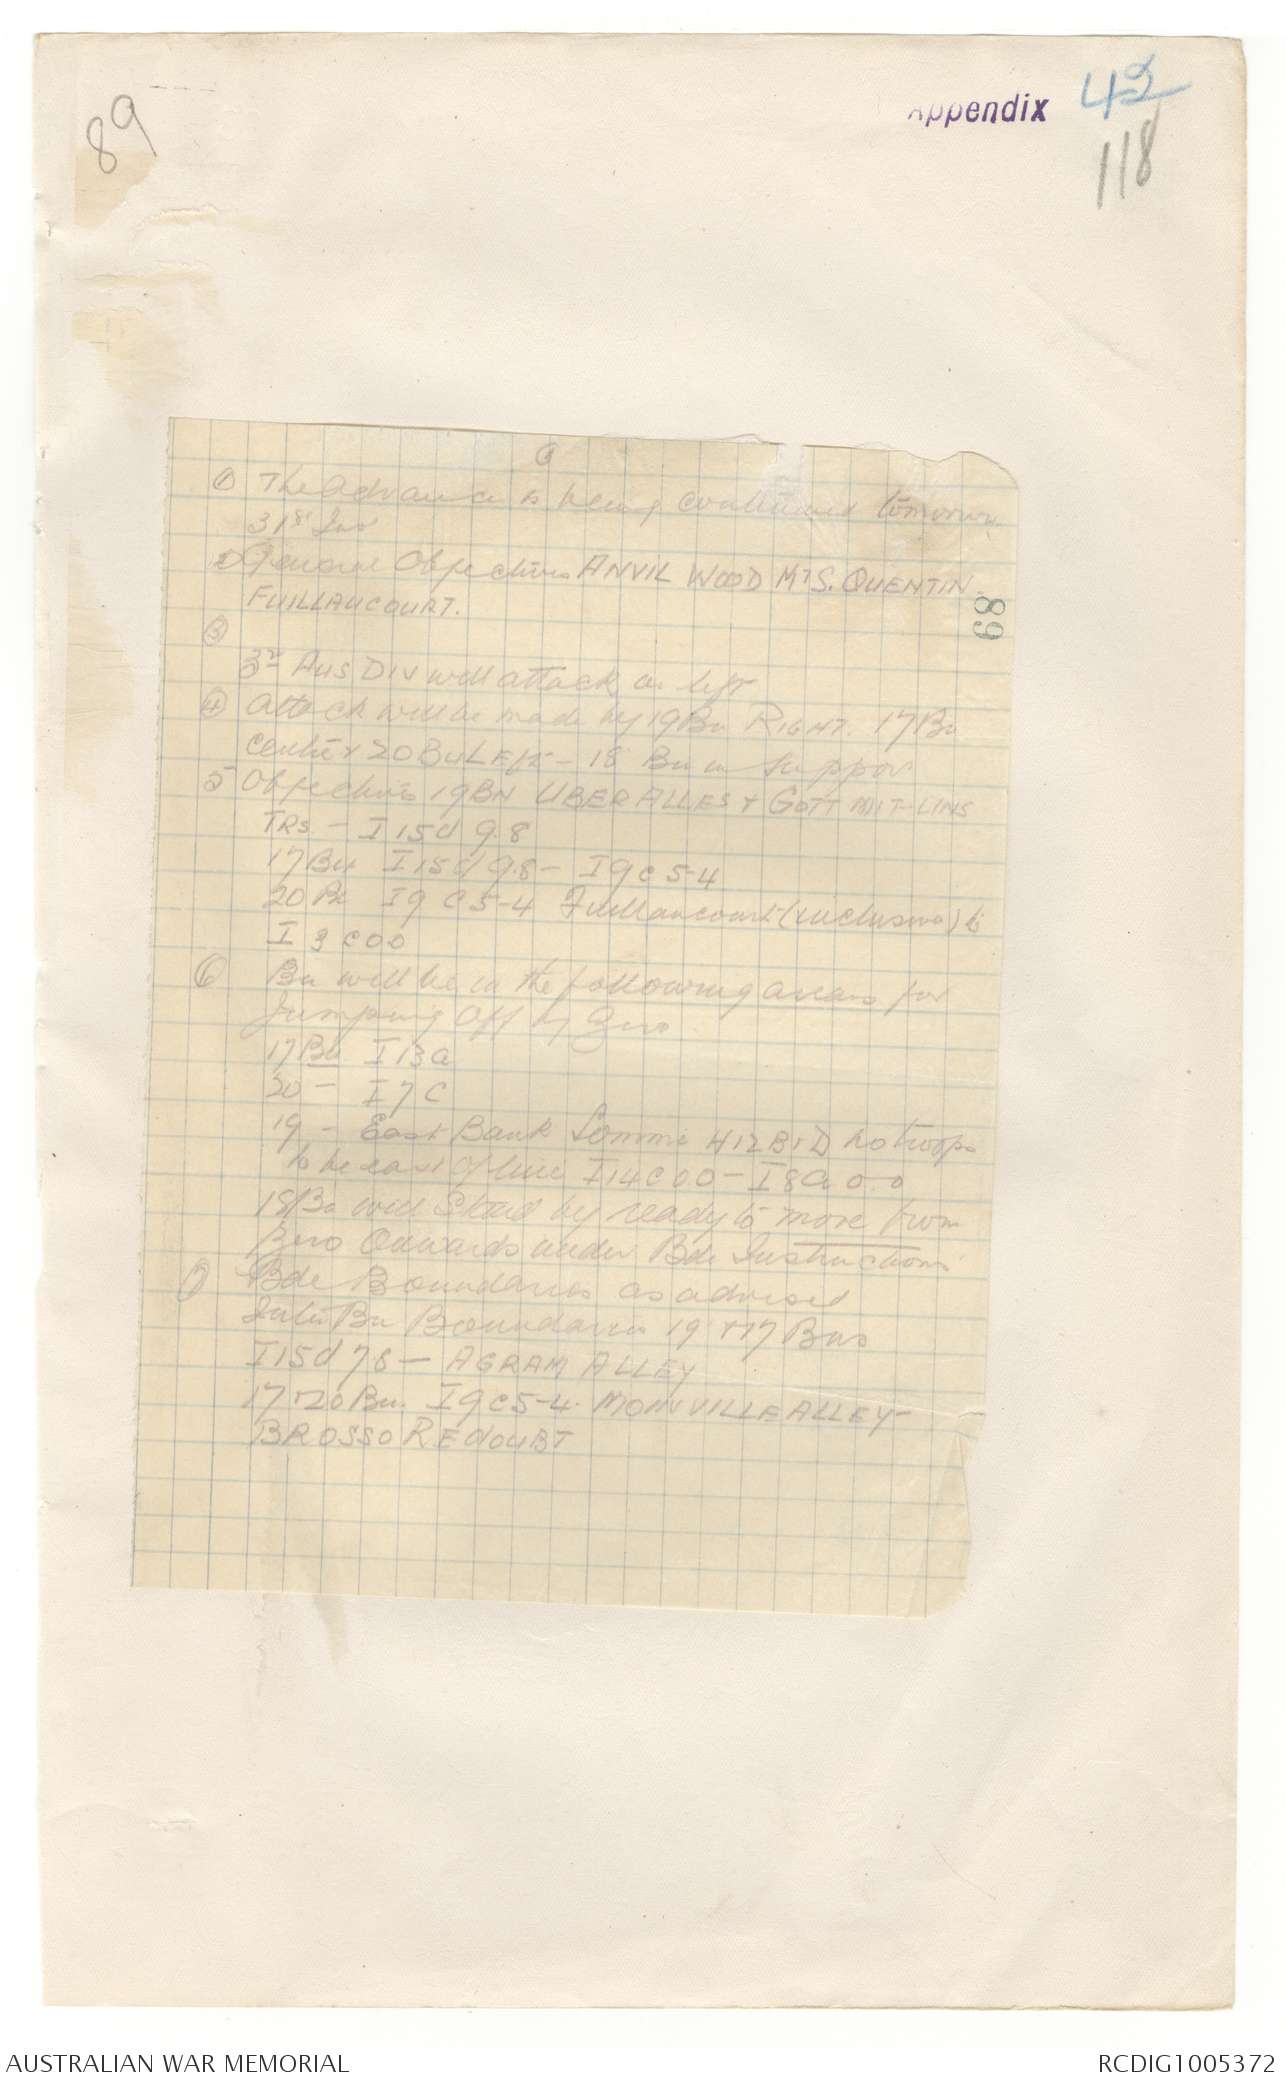 89
Appendix 42
118
①
① The advance is being continued tomorrow
31st
② General Objectives ANVIL WOOD MT S. QUENTIN -
FUILLAUCOURT.
89
③
3rd AUS DIV will attack on left
④ Attack will be made by 19 Bn RIGHT. 17 Bn
centre & 20 Bn LEft - 18 Bn in support
5 Objectives 19 BN UBER ALLES & GOTT MIT-UNS
TRS. - I 15 d 9.8
17 Bn I 15 d 9.8 - I 9 c 5-4
20 Bn I 9 C 5-4 Fuillaucourt (inclusive) to
I 3 C 0 0
⑥ Bn will be in the following areas for
Jumping Off by Zero
17 Bn I 13 a
20 - I 7 C
19 - East Bank Somme H 12 B & D no troops
to be east of line I 14 C 0 0 - I 8 a 0.0
18 Bn will Stand by ready to move from
Zero Onwards under Bde Instructions
⑦ Bde Boundaries as advised
Inter Bn Boundaries 19 & 17 Bns
I 15 d 7 8 - AGRAM ALLEY
17 & 20 Bn. I 9 C 5-4. MONVVILLE ALLEY -
BROSSO REdOUBT
AUSTRALIAN WAR MEMORIAL
RCDIG1005372